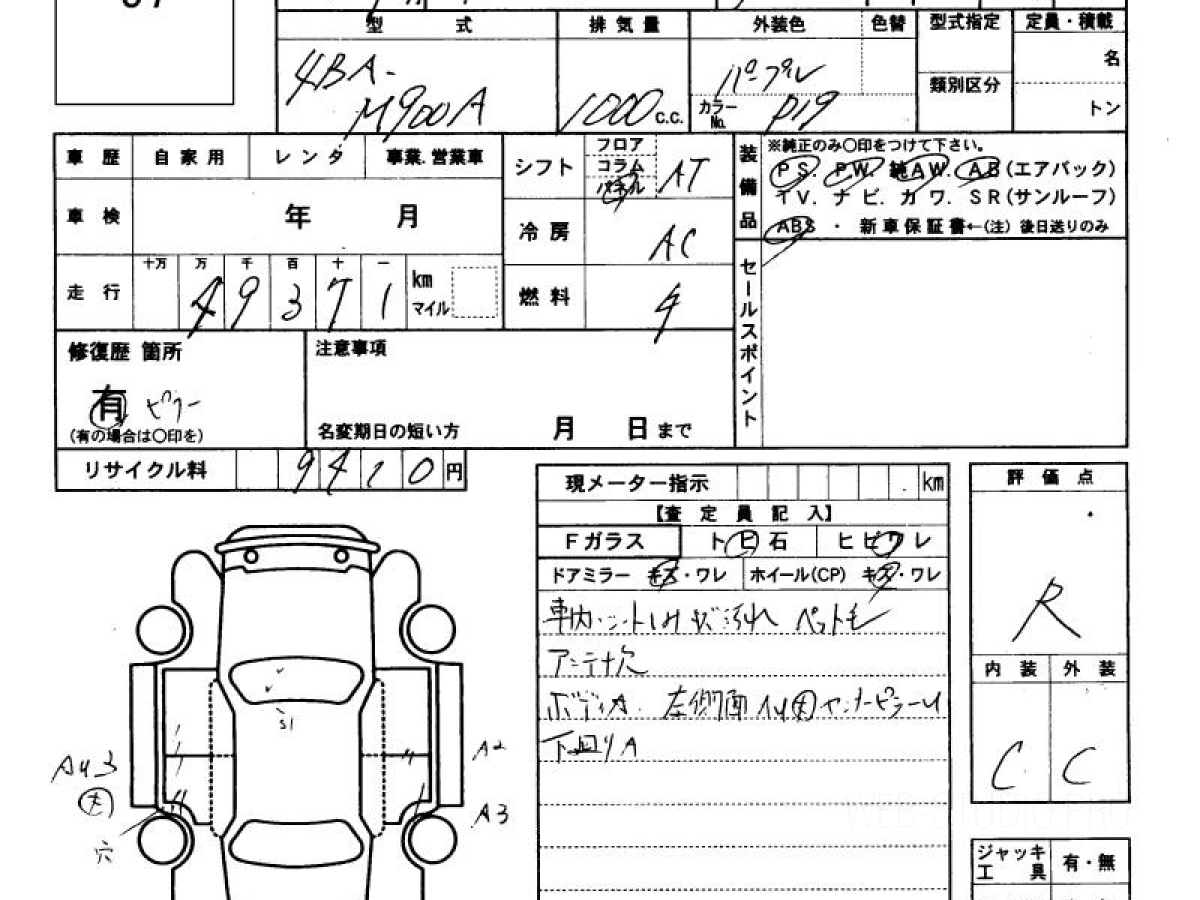 型 式 排 気 量 外装色 色替 型式指定 定員・積載
4BA-
M900A
1000 c.c.
パープル
カラーNo. P19
類別区分
名
トン
車 歴 自 家 用 レ ン タ 事業.営業車
車 検 年 月
十万 万 千 百 十 一
走 行 4 9 3 7 1 km
マイル
シフト フロア
コラム
パネル
AT
冷 房 AC
燃 料
装備品
※純正のみ〇印をつけて下さい。
PS. PW. 純AW. AB(エアバック)
TV. ナ ビ. カ ワ. SR(サンルーフ)
ABS ・ 新 車 保 証 書←(注) 後日送りのみ
セールスポイント
修復歴 箇所
有 ピラー
(有の場合は〇印を)
注意事項
名変期日の短い方 月 日 まで
リサイクル料 9 4 1 0 円
現メーター指示 . km
【査 定 員 記 入】
Fガラス ト ビ 石 ヒ ビ ワ レ
ドアミラー キズ・ワレ ホイール(CP) キズ・ワレ
車内・シートしみ キズ 汚れ ペット毛
アンテナ欠
ボディA. 左側面 AU大
下回りA
評 価 点
R
内 装 外 装
C C
S1
AU3
大
穴
A2
A3
WEB-STUDIO.PRO
ジャッキ
工 具
有・無